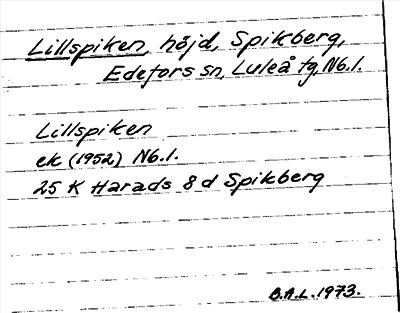 Lillspiken, höjd, Spikberg,
Edefors sn, Luleå tg, Nb.l.
Lillspiken
ek (1952) Nb.l.
25 K Harads 8 d Spikberg
B.A.L. 1973.